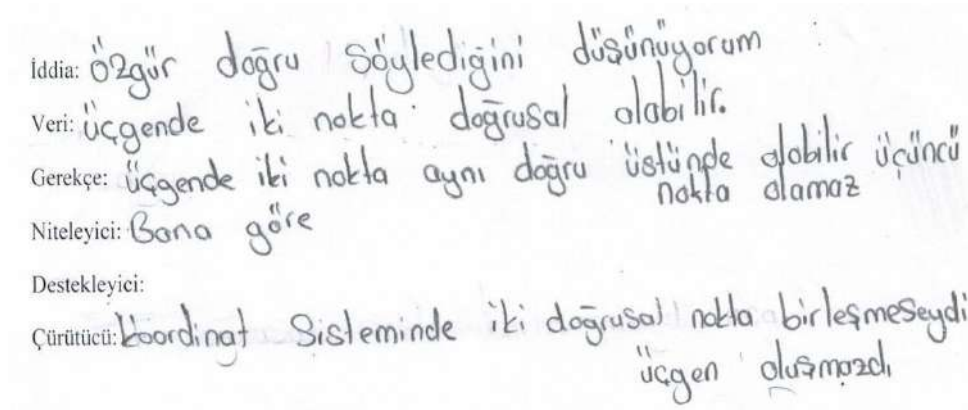 İddia: Özgür doğru söylediğini düşünüyorum
Veri: üçgende iki nokta doğrusal olabilir.
Gerekçe: üçgende iki nokta aynı doğru üstünde olabilir üçüncü
nokta olamaz
Niteleyici: Bana göre
Destekleyici:
Çürütücü: Koordinat Sisteminde iki doğrusal nokta birleşmeseydi
üçgen oluşmazdı